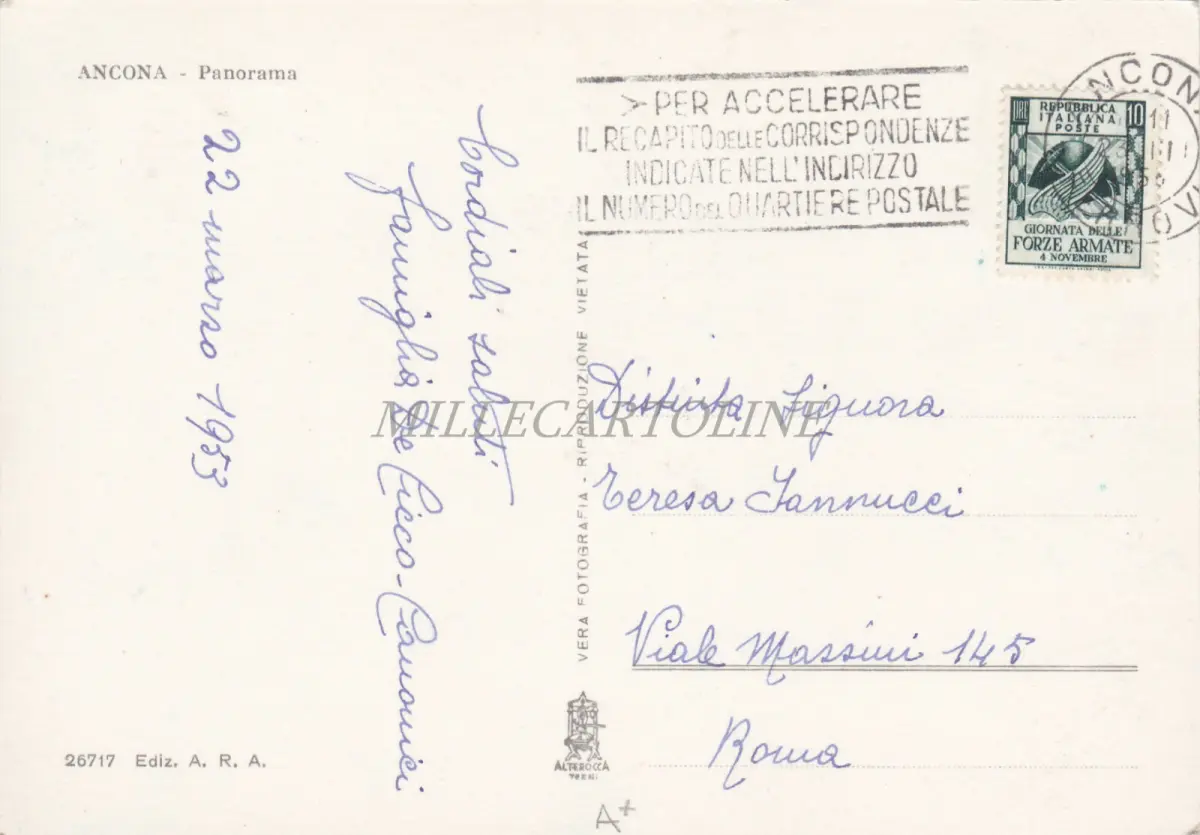 ANCONA - Panorama
22 marzo 1953
Cordiali saluti
famiglia De Cicco-Canonici
26717 Ediz. A. R. A.
VERA FOTOGRAFIA - RIPRODUZIONE VIETATA
ALTEROCCA
TERNI
A+
PER ACCELERARE
IL RECAPITO DELLE CORRISPONDENZE
INDICATE NELL'INDIRIZZO
IL NUMERO DEL QUARTIERE POSTALE
LIRE 10
REPUBBLICA
ITALIANA
POSTE
GIORNATA DELLE
FORZE ARMATE
4 NOVEMBRE
ANCONA
Distinta Signora
Teresa Iannucci
Viale Massini 145
Roma
MILLECARTOLINE